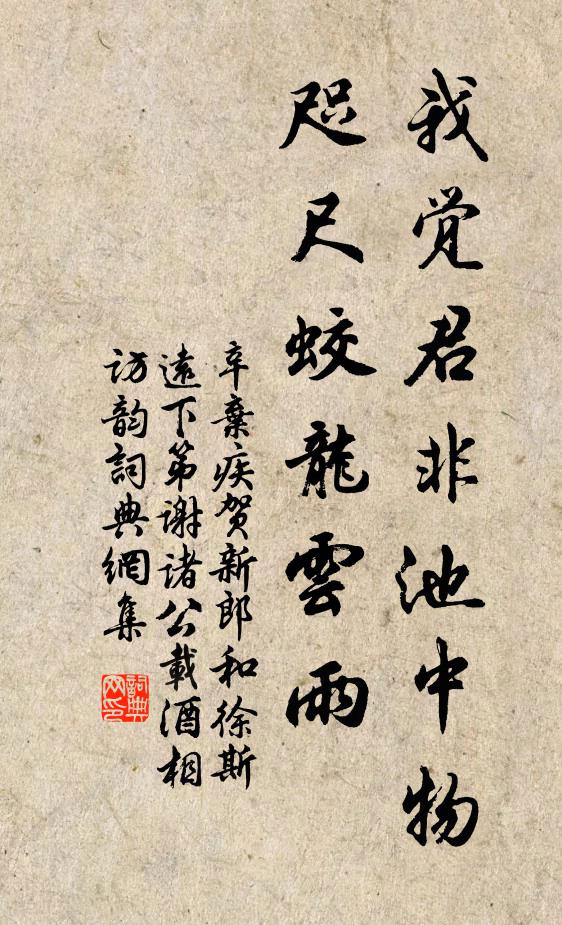 我觉君非池中物
咫尺蛟龍雲雨
辛棄疾贺新郎和徐斯
遠下第谢诸公載酒相
访韵詞典網集
詞典
网印